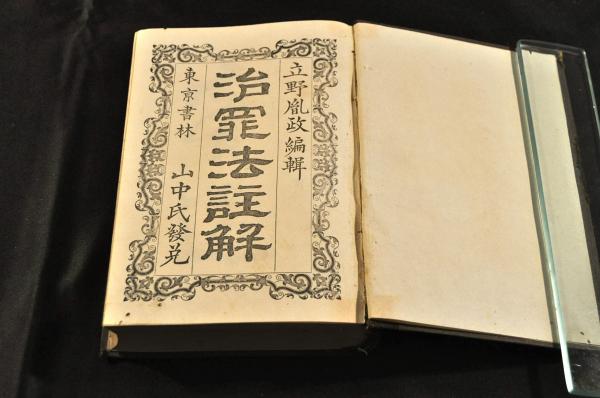 立野胤政編輯
治罪法註解
東京書林 山中氏發兌